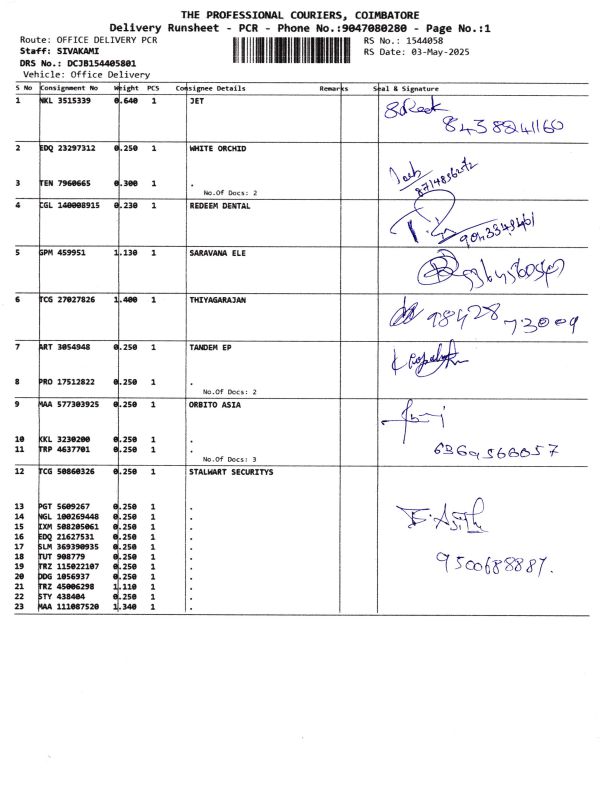 THE PROFESSIONAL COURIERS, COIMBATORE
Delivery Runsheet - PCR - Phone No.:9047080280 - Page No.:1
Route: OFFICE DELIVERY PCR RS No.: 1544058
Staff: SIVAKAMI RS Date: 03-May-2025
DRS No.: DCJB154405801
Vehicle: Office Delivery
S No Consignment No Weight PCS Consignee Details Remarks Seal & Signature
1 NKL 3515339 0.640 1 JET
8438841160
2 EDQ 23297312 0.250 1 WHITE ORCHID
3 TEN 7960665 0.300 1 .
No.Of Docs: 2
4 CGL 140008915 0.230 1 REDEEM DENTAL
5 GPM 459951 1.130 1 SARAVANA ELE
6 TCG 27027826 1.400 1 THIYAGARAJAN
98428 73009
7 ART 3054948 0.250 1 TANDEM EP
8 PRO 17512822 0.250 1 .
No.Of Docs: 2
9 MAA 577303925 0.250 1 ORBITO ASIA
10 KKL 3230200 0.250 1 .
11 TRP 4637701 0.250 1 .
6369566057
No.Of Docs: 3
12 TCG 50860326 0.250 1 STALWART SECURITYS
13 PGT 5609267 0.250 1 .
14 NGL 100269448 0.250 1 .
15 IXM 508205061 0.250 1 .
16 EDQ 21627531 0.250 1 .
17 SLM 369390935 0.250 1 .
18 TUT 908779 0.250 1 .
19 TRZ 115022107 0.250 1 .
9500688887.
20 DDG 1056937 0.250 1 .
21 TRZ 45006298 1.110 1 .
22 STY 438404 0.250 1 .
23 MAA 111087520 1.340 1 .